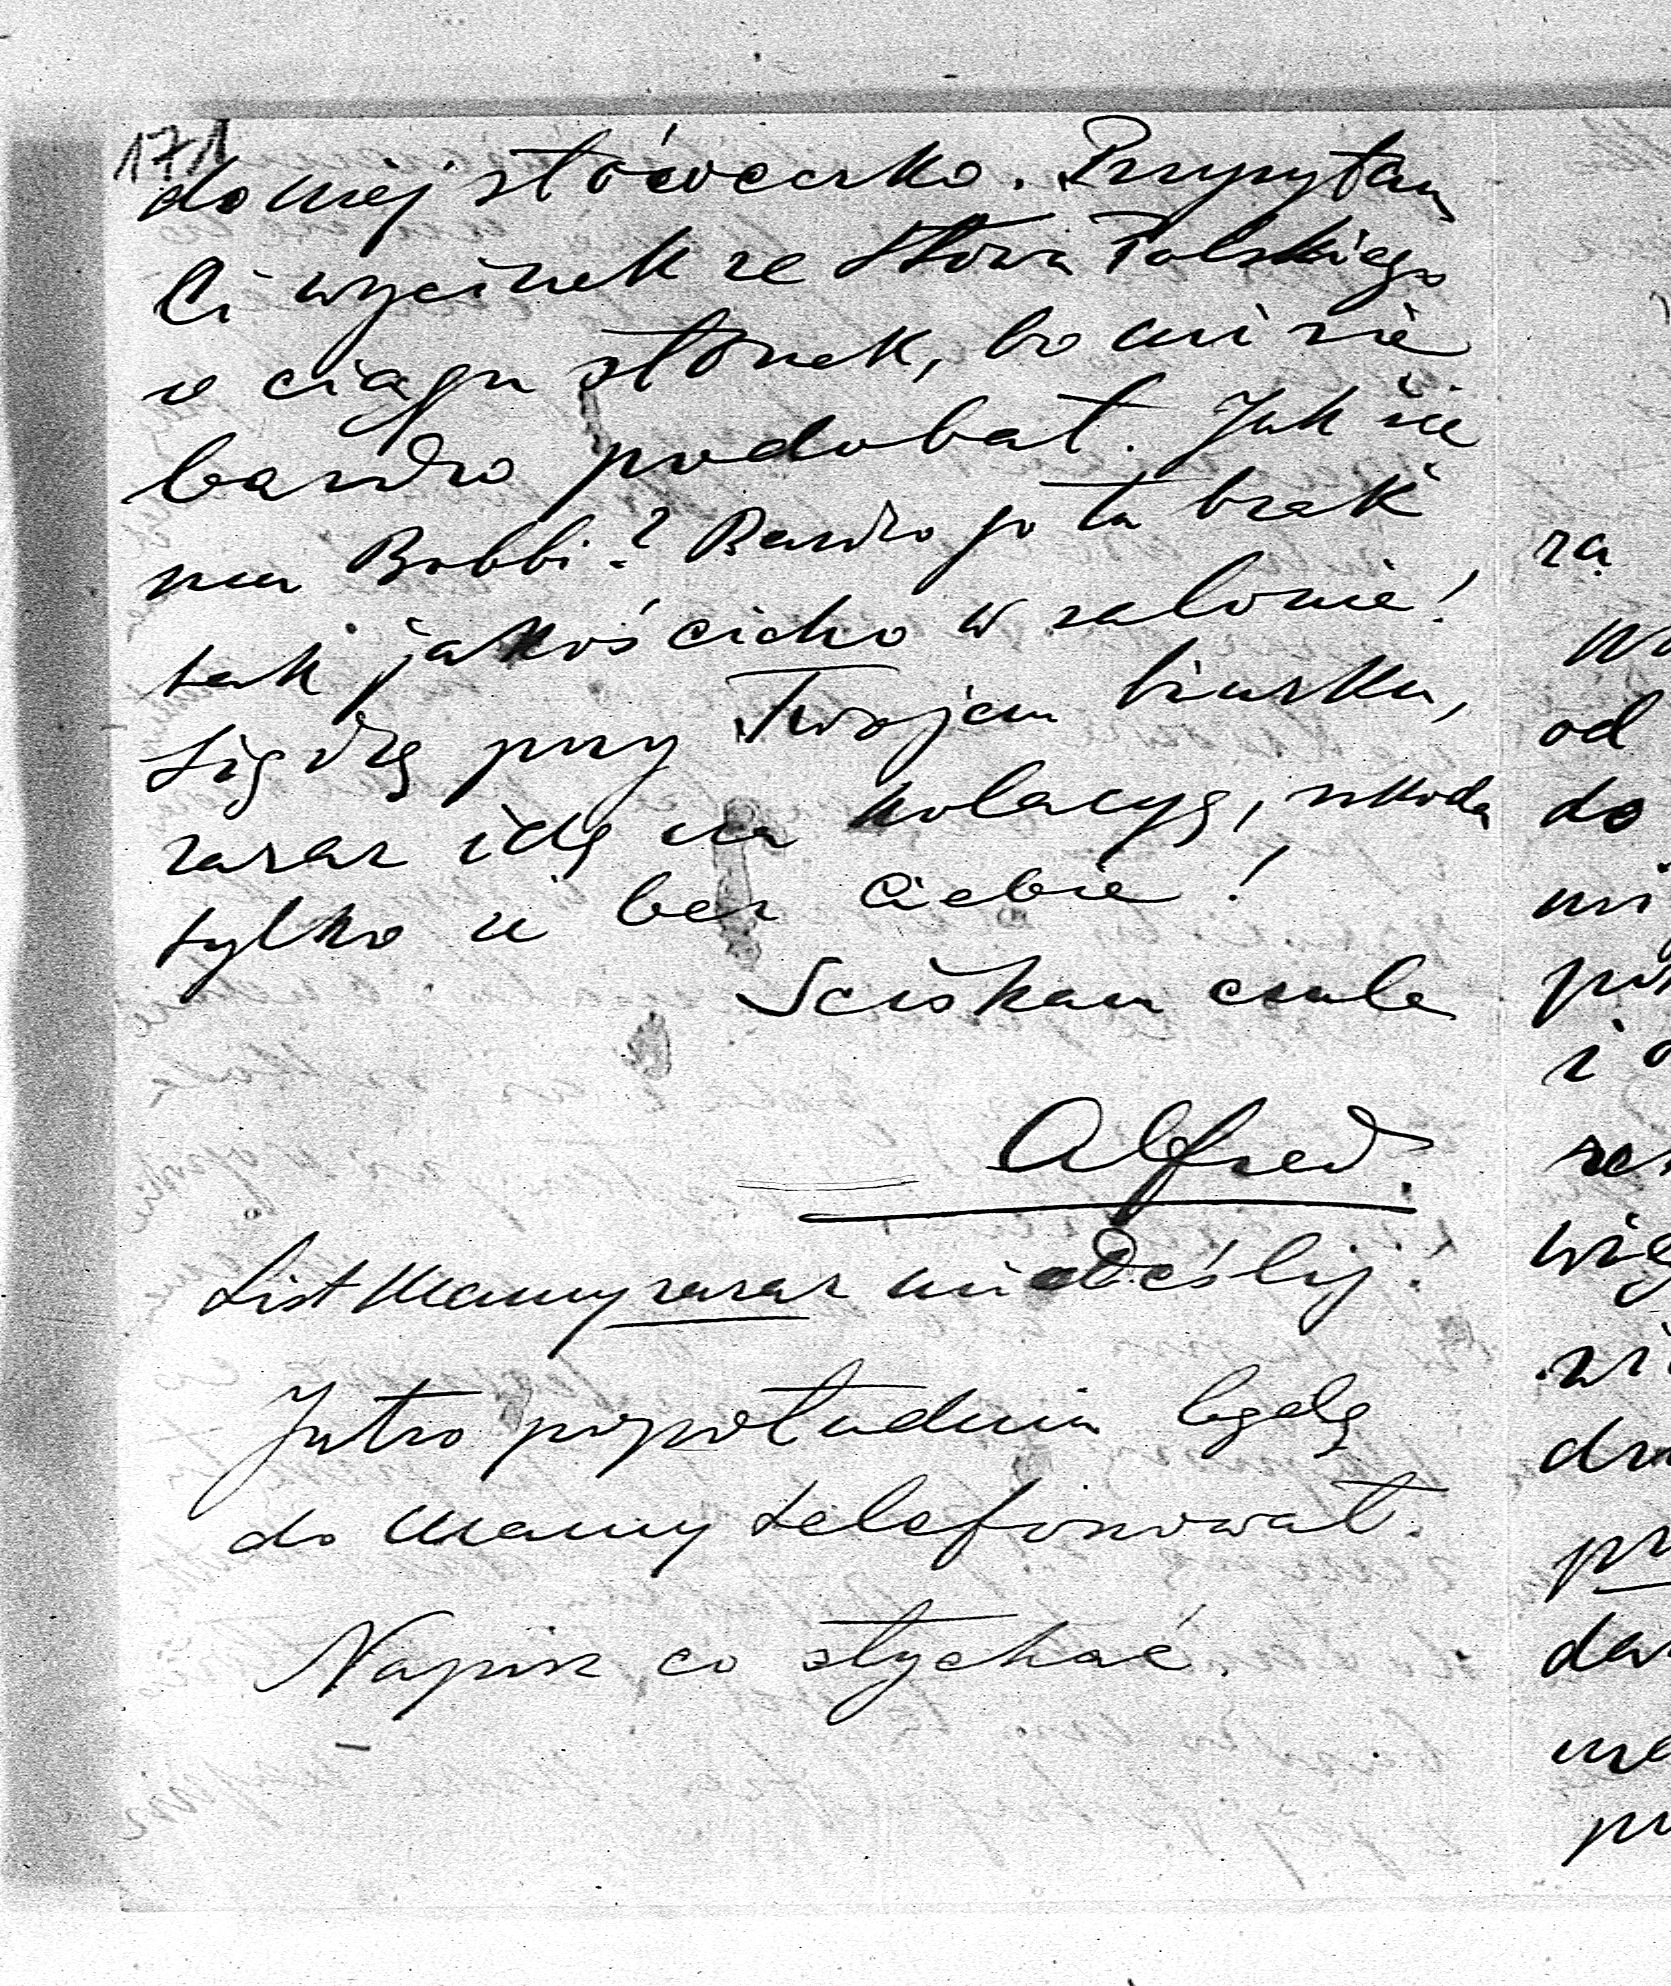 171
do niej słóweczko. Przysyłam
Ci wycinek ze Słowa Polskiego
o ciągu słonek, bo mi się
bardzo podobał. Jak się
ma Bobbi? Bardzo go tu brak
tak jakoś cicho w salonie!
Siedzę przy Twojem biurku,
zaraz idę na kolacyę, szkoda
tylko że bez Ciebie!
Sciskam czule
Alfred.
List Mamy zaraz mi odeślij.
Jutro popołudniu będę
do Mamy telefonował.
Napisz co słychać.
zą
od
do
mi
i